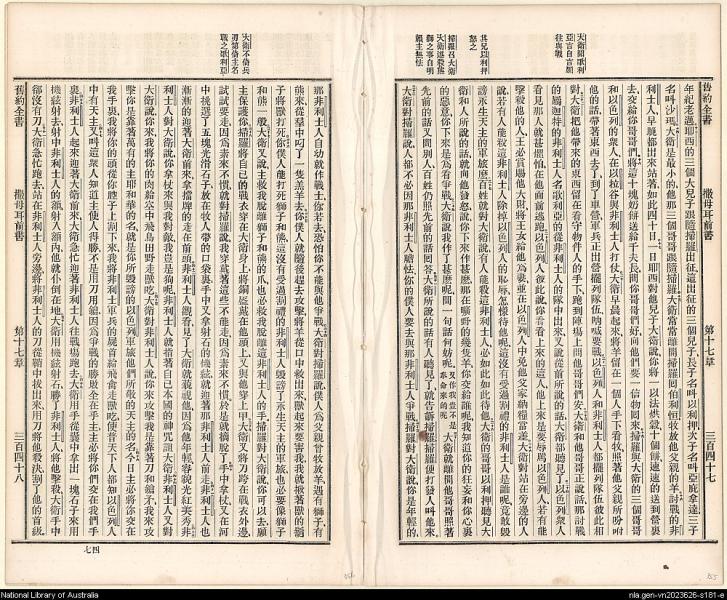 舊約全書
撒母耳前書
第十七章
三百四十七
大衛聞歌利
亞言自言願
往與戰
其兄以利押
怒之
掃羅召大衛
大衛述殺熊
獅之事自明
賴主無怯
年紀老邁耶西的三個大兒子跟隨掃羅出征這出征的三個兒子長子名叫以利押次子名叫亞庇拿達三子
名叫沙瑪大衛是最小的他那三個哥哥跟隨掃羅大衛常常離開掃羅回伯利恆牧放他父親的羊討戰的非
利士人早晚都出來站著如此四十日一日耶西對他兒子大衛說你將一以法烘穀十個餅速速的送到營裏
去交給你哥哥們將這十塊奶餅送給千夫長問你哥哥們好向他們要一信物回來掃羅與大衛的三個哥哥
和以色列的衆人在以拉谷與非利士人打仗大衛早晨起來將羊留在一個人手下看牧照著他父親所吩咐
他的話帶著東西去了到了車營軍兵正出營擺列隊伍吶喊要戰以色列人和非利士人都擺列隊伍彼此相
對大衛把他帶來的東西留在看守物件人的手下跑到陣場上問他哥哥們安大衛和他哥哥正說話那討戰
的屬迦特的非利士人名歌利亞的從非利士人的隊中出來又說從前所說的話大衛都聽見了以色列衆人
看見那人就甚懼怕在他面前逃跑以色列人彼此說你看見上來的這人他上來是要辱罵以色列人若有能
擊殺他的人王必賞賜他大財將王女給他爲妻並在以色列人中免他父家納糧當差大衛對站在旁邊的人
說若有人能殺這非利士人除掉以色列人的恥辱怎樣待他呢這沒有受過割禮的非利士人是誰呢竟敢毀
謗永生天主的軍旅麼百姓就對大衛說有人能殺這非利士人必如此如此待他大衛的哥哥以利押聽見大
衛和人所說的話就向他發怒說你下來作甚麼那在曠野的幾隻羊你交給誰呢我知道你的狂妄和你心裏
的惡意你下來是爲看爭戰大衛說我作了甚麼呢問一句話何妨呢大衛就離開他哥哥照著
先前的話又問別人百姓仍照先前的話回答大衛所說的話有人聽見了就告訴掃羅掃羅便打發人叫他來
大衛對掃羅說人都不必因那非利士人膽怯你的僕人要去與那非利士人爭戰掃羅對大衛說你是年輕的
大衛不倚兵
刃第倚主名
戰之歌利亞
那非利士人自幼就作戰士你若去恐怕你不能與他爭戰大衛對掃羅說僕人爲父親曾牧放羊遇有獅子有
熊來從羣中叼了一隻羔羊去你僕人就隨後趕去攻擊將羊從口中救出來獸起來要害我我就揪著獸的鬍
子將獸打死你僕人能打死獅子和熊這沒有受過割禮的非利士人毀謗了永生天主的軍旅也必要像獅子
和熊一般大衛又說主救我脫離這獅子和熊的爪也必救我脫離這非利士人的手掃羅對大衛說你可以去願
主保護你掃羅將自己的戰衣穿在大衛身上將銅盔戴在他頭上又與他穿上甲大衛又將刀跨在戰衣外邊
試試要走因爲素來不慣就對掃羅說我穿戴著這些不能走因爲素來不慣於是就摘脫了手中拿杖又在河
中挑選了五塊光滑石子放在牧人帶的口袋裏手中又拿拋石的機絃就迎著那非利士人前走非利士人也
漸漸的迎著大衛前來拿擋牌的走在前頭非利士人觀看見了大衛就藐視他因爲他年輕容貌光紅美秀非
利士人對大衛說你拿杖來與我對敵我豈是狗呢非利士人就指著自己本國的神咒詛大衛非利士人又對
大衛說你來我將你的肉給空中飛鳥田野走獸吃大衛對非利士人說你來攻擊我是靠著刀和鎗子我來攻
擊你是靠著萬有的主耶和華的名就是你所毀謗的以色列軍旅他們所敬的天主的名今日主必將你交在
我手裏我將你的頭從你脖子上割下來我將非利士人軍兵的屍首給飛禽走獸吃使普天下人都知以色列
中有天主又叫這衆人知道主使人得勝不是用刀用鎗因爲爭戰的勝敗全在乎主主必將你們交在我們手
裏非利士人起來迎著大衛前來大衛急忙迎著非利士人往戰場跑去大衛用手從囊中拿出一塊石子來用
機絃射去射中非利士人的額射入額內他就仆倒在地大衛用機絃射石勝了非利士人將他擊殺大衛手中
卻沒有刀大衛急忙跑去站在非利士人旁邊將非利士人的刀從鞘中拔出來用刀將他殺決割了他的首級
舊約全書
撒母耳前書
第十七章
三百四十八
四七
National Library of Australia
nla.gen-vn2023626-s181-e